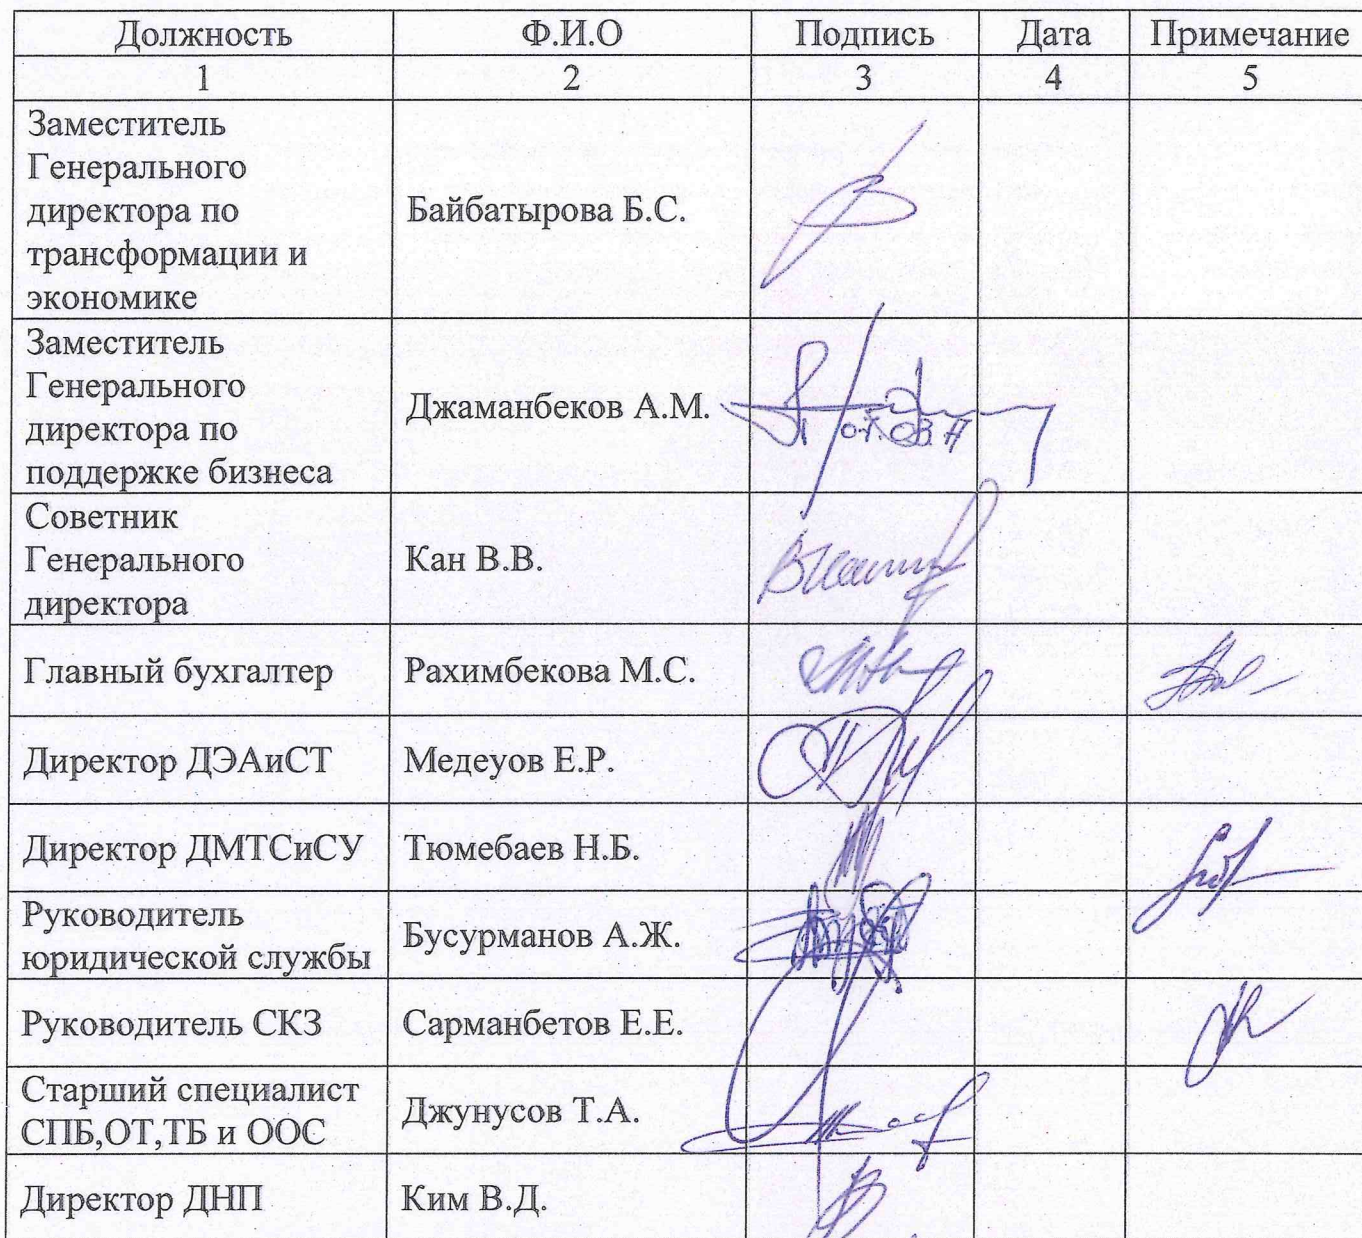 Должность Ф.И.О Подпись Дата Примечание
1 2 3 4 5
Заместитель
Генерального
директора по
трансформации и
экономике
Байбатырова Б.С.
Заместитель
Генерального
директора по
поддержке бизнеса
Джаманбеков А.М.
Советник
Генерального
директора
Кан В.В.
Главный бухгалтер Рахимбекова М.С.
Директор ДЭАиСТ Медеуов Е.Р.
Директор ДМТСиСУ Тюмебаев Н.Б.
Руководитель
юридической службы
Бусурманов А.Ж.
Руководитель СКЗ Сарманбетов Е.Е.
Старший специалист
СПБ,ОТ,ТБ и ООС
Джунусов Т.А.
Директор ДНП Ким В.Д.